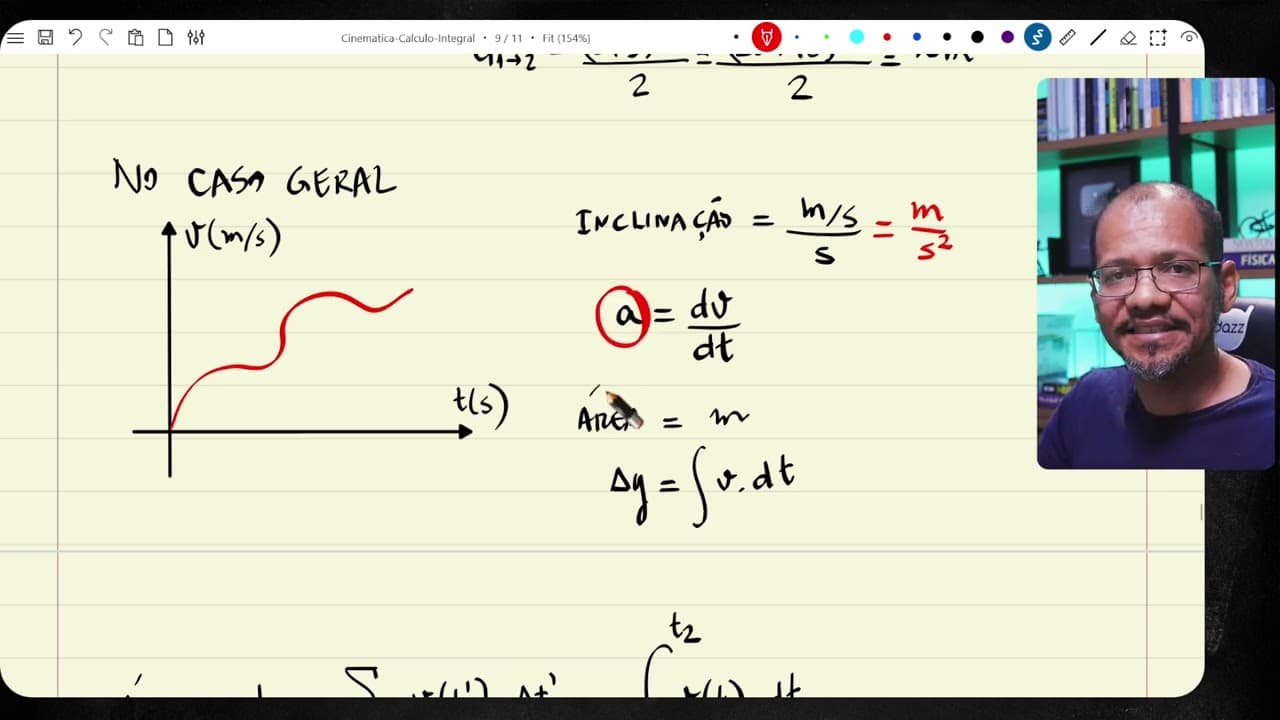 Cinematica-Calculo-Integral • 9 / 11 • Fit (154%)
2 2
NO CASO GERAL
v(m/s)
t(s)
INCLINAÇÃO = m/s / s = m / s²
a = dv / dt
ÁREA = m
Δy = ∫ v. dt
t2
FISICA
dazz